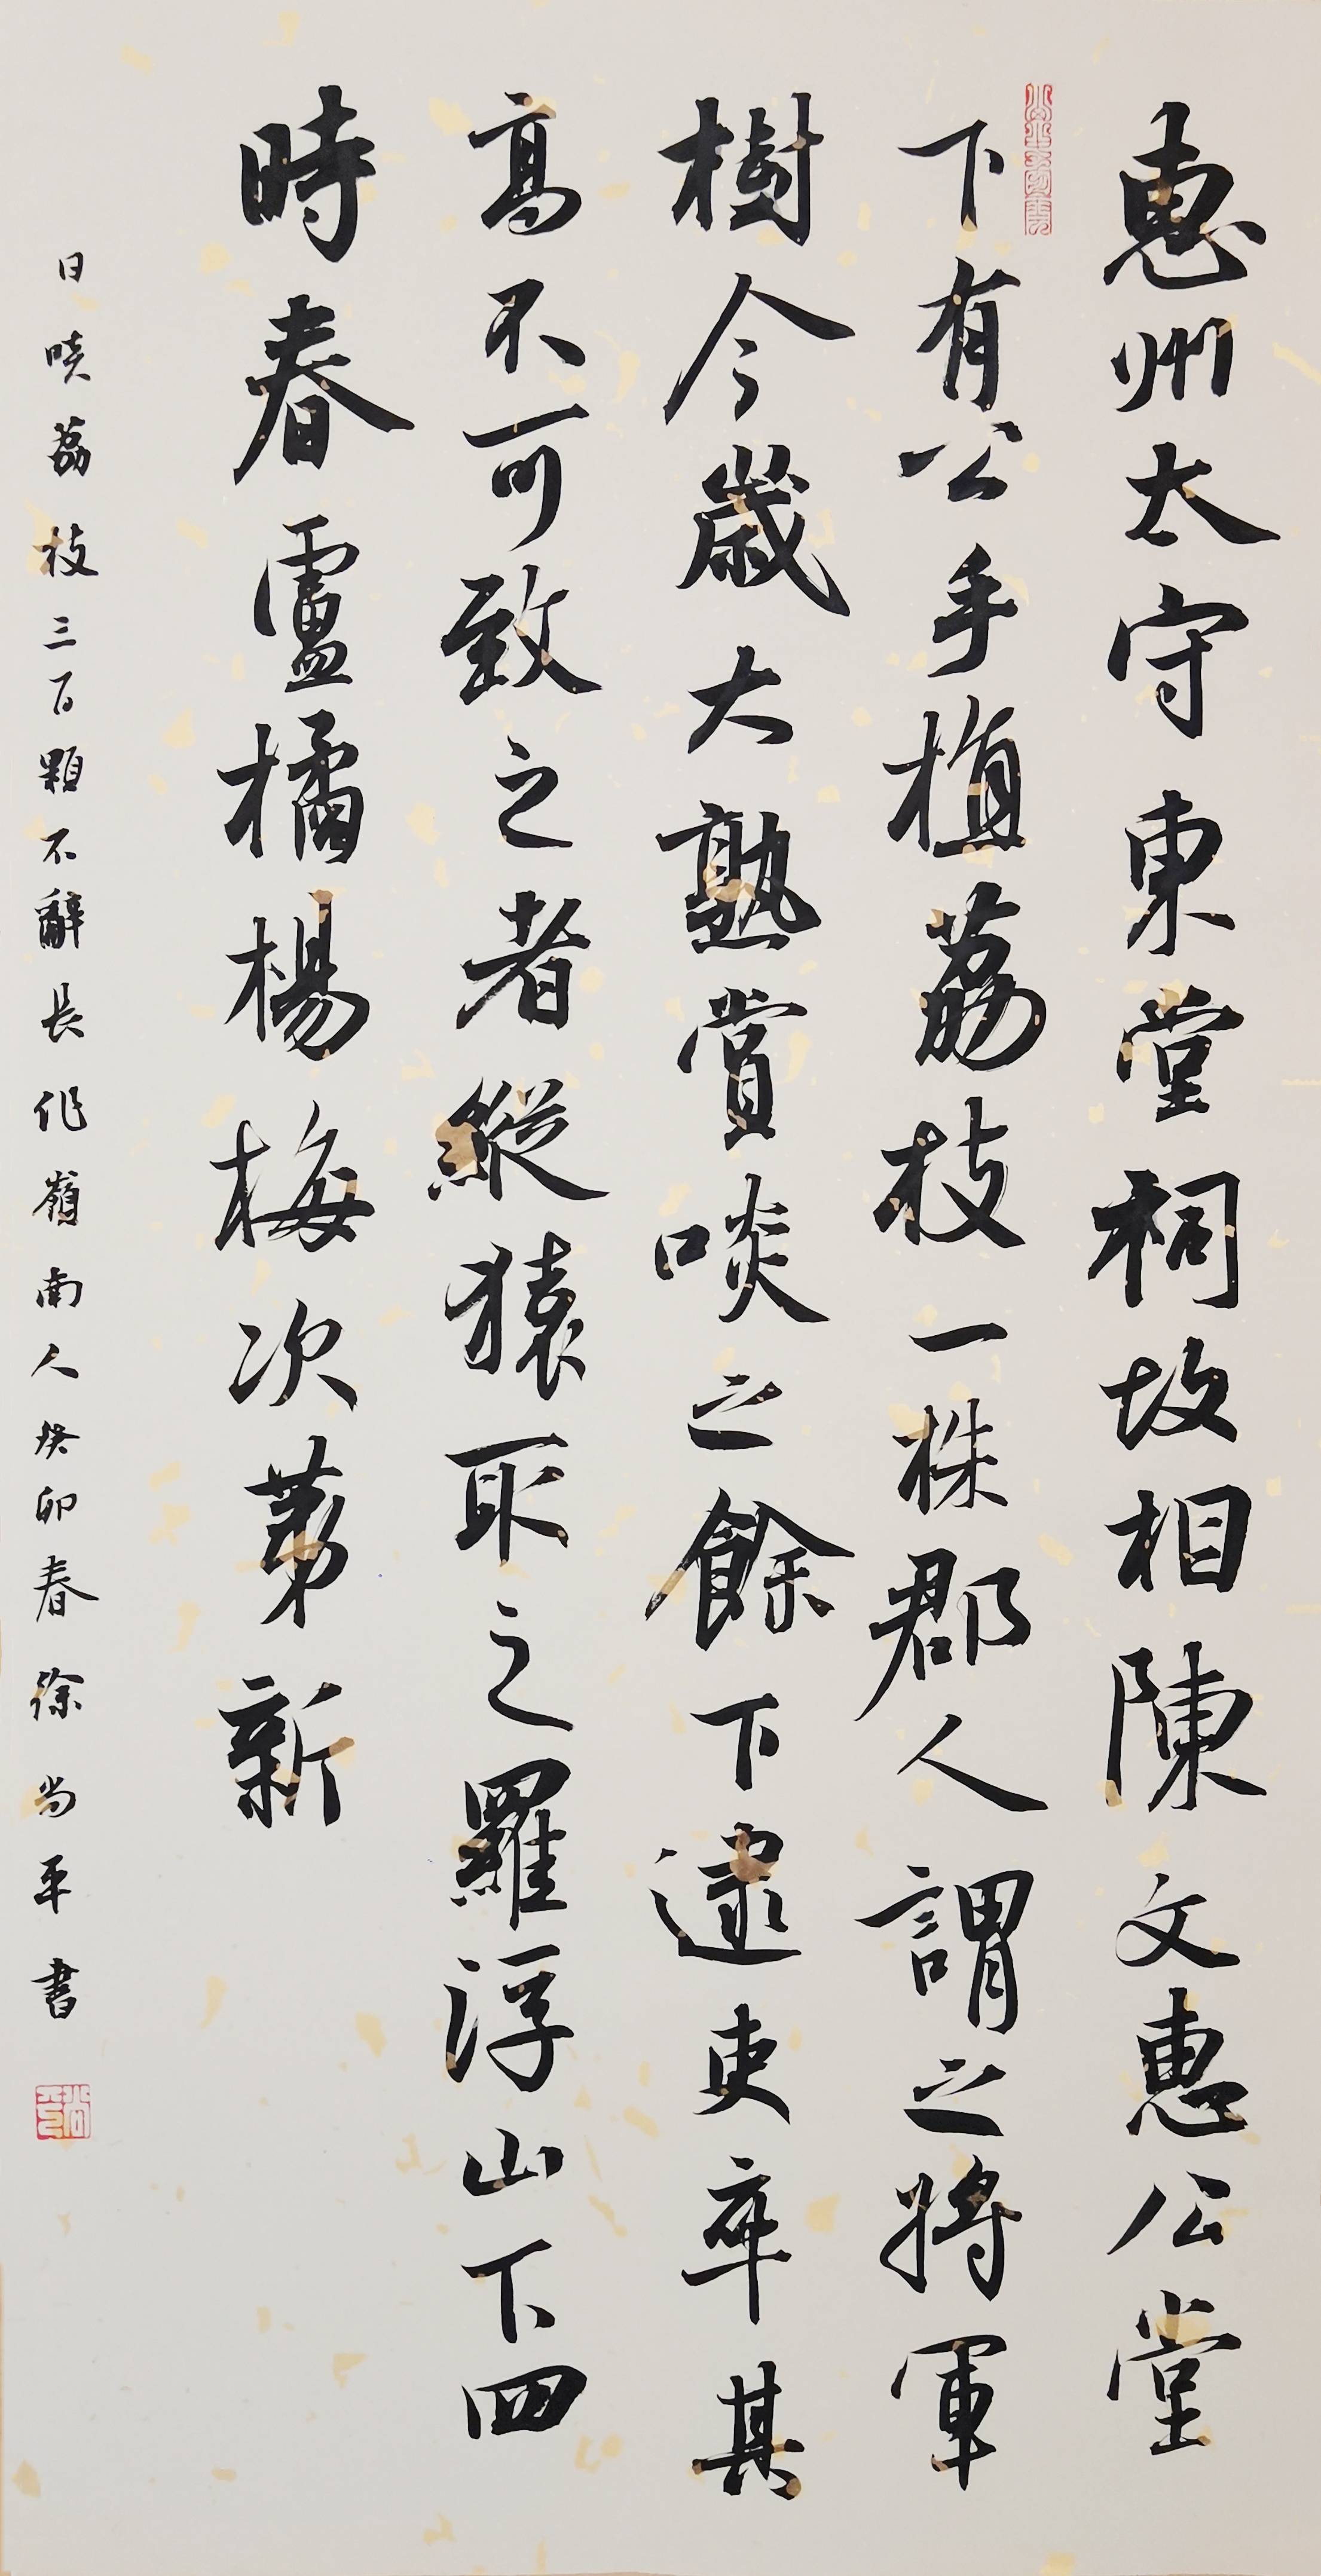 惠州太守東堂祠故相陳文惠公堂
下有公手植荔枝一株郡人謂之將軍
樹今歲大熟賞啖之餘下逮吏卒其
高不可致之者縱猿取之羅浮山下四
時春盧橘楊梅次苐新
日啖荔枝三百顆不辭長作嶺南人癸卯春徐尚平書